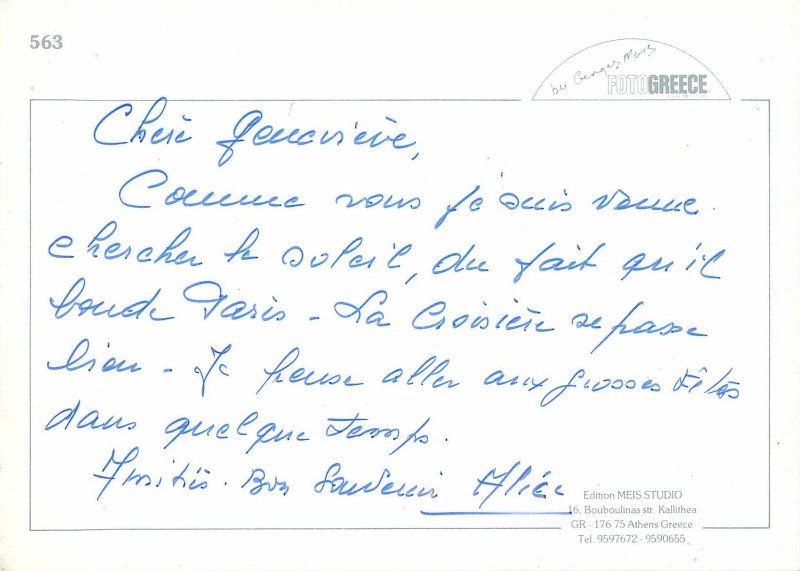 563
by Georges Meis
FOTOGREECE
Chère Geneviève,
Comme vous je suis venue
chercher le soleil, du fait qu'il
boude Paris - La Croisière se passe
bien - Je pense aller aux grosses têtes
dans quelque temps.
Amitiés. Bon Souvenir Alice
Edition MEIS STUDIO
16, Bouboulinas str. Kallithea
GR - 176 75 Athens Greece
Tel. 9597672 - 9590655